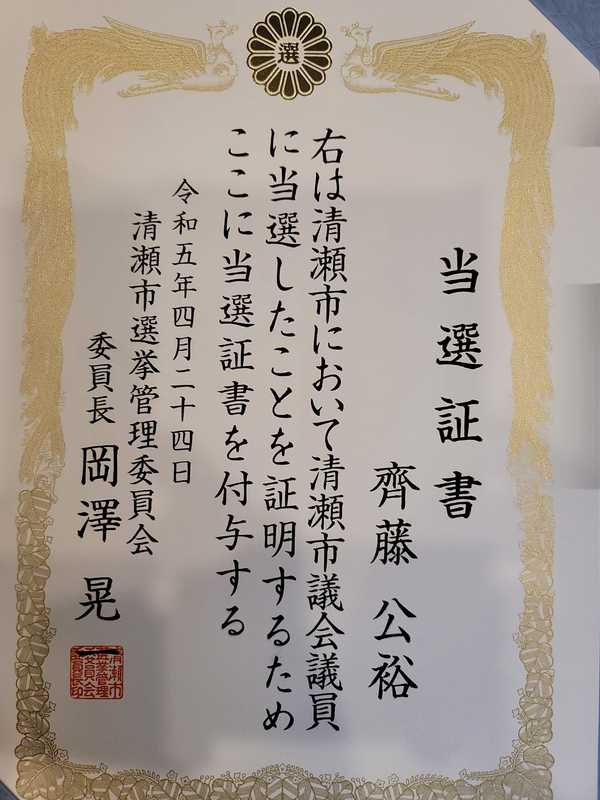 選
当選証書
齊藤公裕
右は清瀬市において清瀬市議会議員
に当選したことを証明するため
ここに当選証書を付与する
令和五年四月二十四日
清瀬市選挙管理委員会
委員長 岡澤 晃
清瀬市
選挙管理
委員会
委員長印